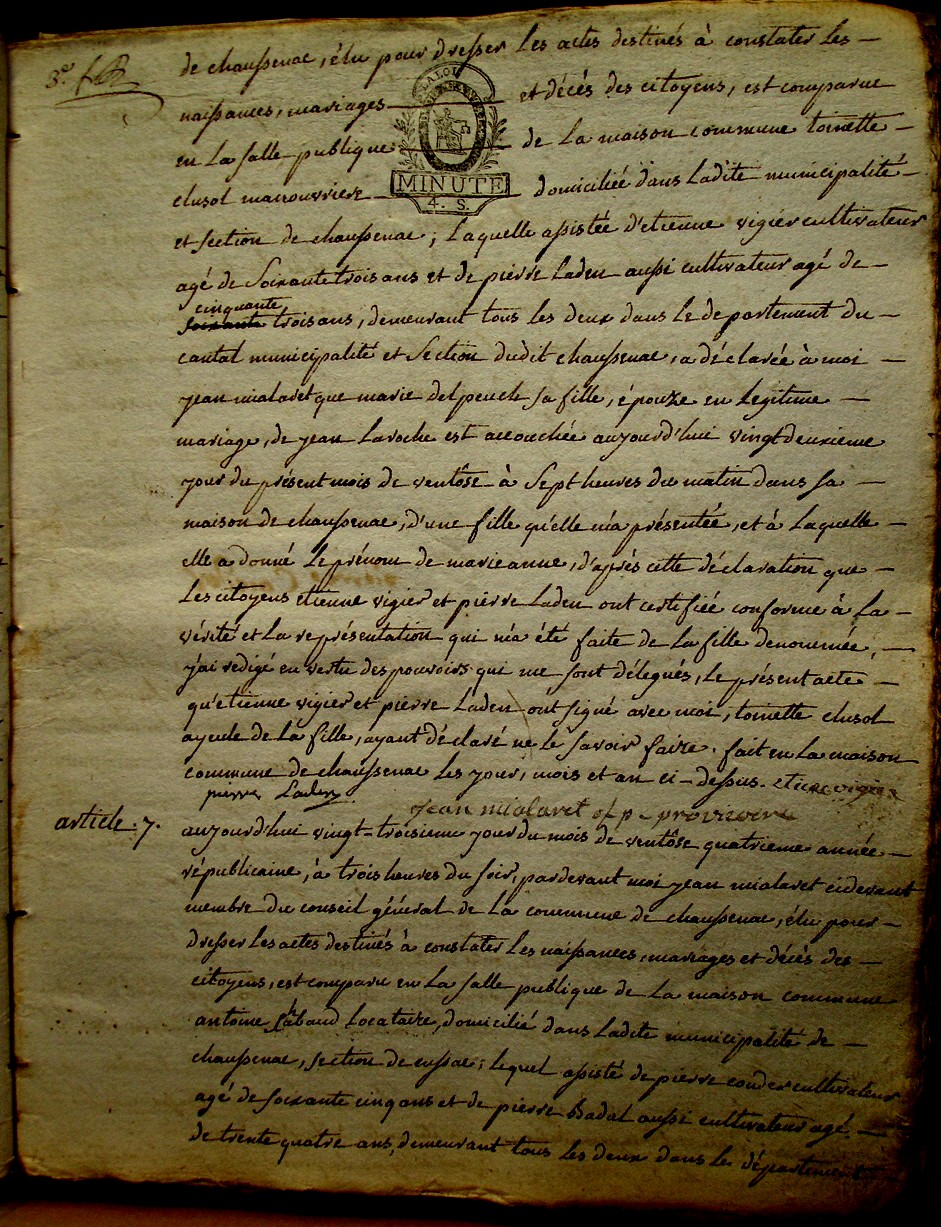 3e. f.
de chaussenac, élu pour dresser les actes destinés à constater les —
naissances, mariages — et décés des citoyens, est comparue
LA LOI
en la salle publique — de la maison commune toinette —
clusol manouvriere — domiciliée dans ladite municipalité —
MINUTE
4. S.
et section de chaussenac ; laquelle assistée d'etienne vigier cultivateur
agé de soixante trois ans et de pierre laden aussi cultivateur agé de —
cinquante
soixante trois ans, demeurant tous les deux dans le departement du —
cantal municipalité et section dudit chaussenac, a déclarée à moi —
jean mialaret que marie delpeuch sa fille, épouze en legitime —
mariage, de jean laroche est accouchée aujourd'hui vingt deuxieme
jour du présent mois de ventôse à sept heures du matin dans sa —
maison de chaussenac, d'une fille qu'elle m'a présentée, et à laquelle —
elle a donné le prénom de marieanne, d'après cette déclaration que —
les citoyens etienne vigier et pierre laden ont certifiée conforme à la —
vérité et la représentation qui m'a été faite de la fille denommée, —
j'ai redigé en vertu des pouvoirs qui me sont délegués, le présent acte —
qu'etienne vigier et pierre laden ont signé avec moi, toinette clusol
ayeule de la fille, ayant déclaré ne le savoir faire. fait en la maison
commune de chaussenac les jour, mois et an ci-dessus. etiene vigier
pierre Laden
jean mialaret of. p. provisoire
article. 7.
aujourd'hui vingt-troisieme jour du mois de ventôse quatrieme année —
républicaine, à trois heures du soir, pardevant moi jean mialaret cidevant
membre du conseil général de la commune de chaussenac, élu pour —
dresser les actes destinés à constater les naissances, mariages et décès des —
citoyens, est comparu en la salle publique de la maison commune
antoine locataire, domicilié dans ladite municipalité de —
chaussenac, section de cussac ; lequel assisté de pierre couder cultivateur
agé de soixante cinq ans et de pierre Badal aussi cultivateur agé —
de trente quatre ans, demeurant tous les deux dans le département